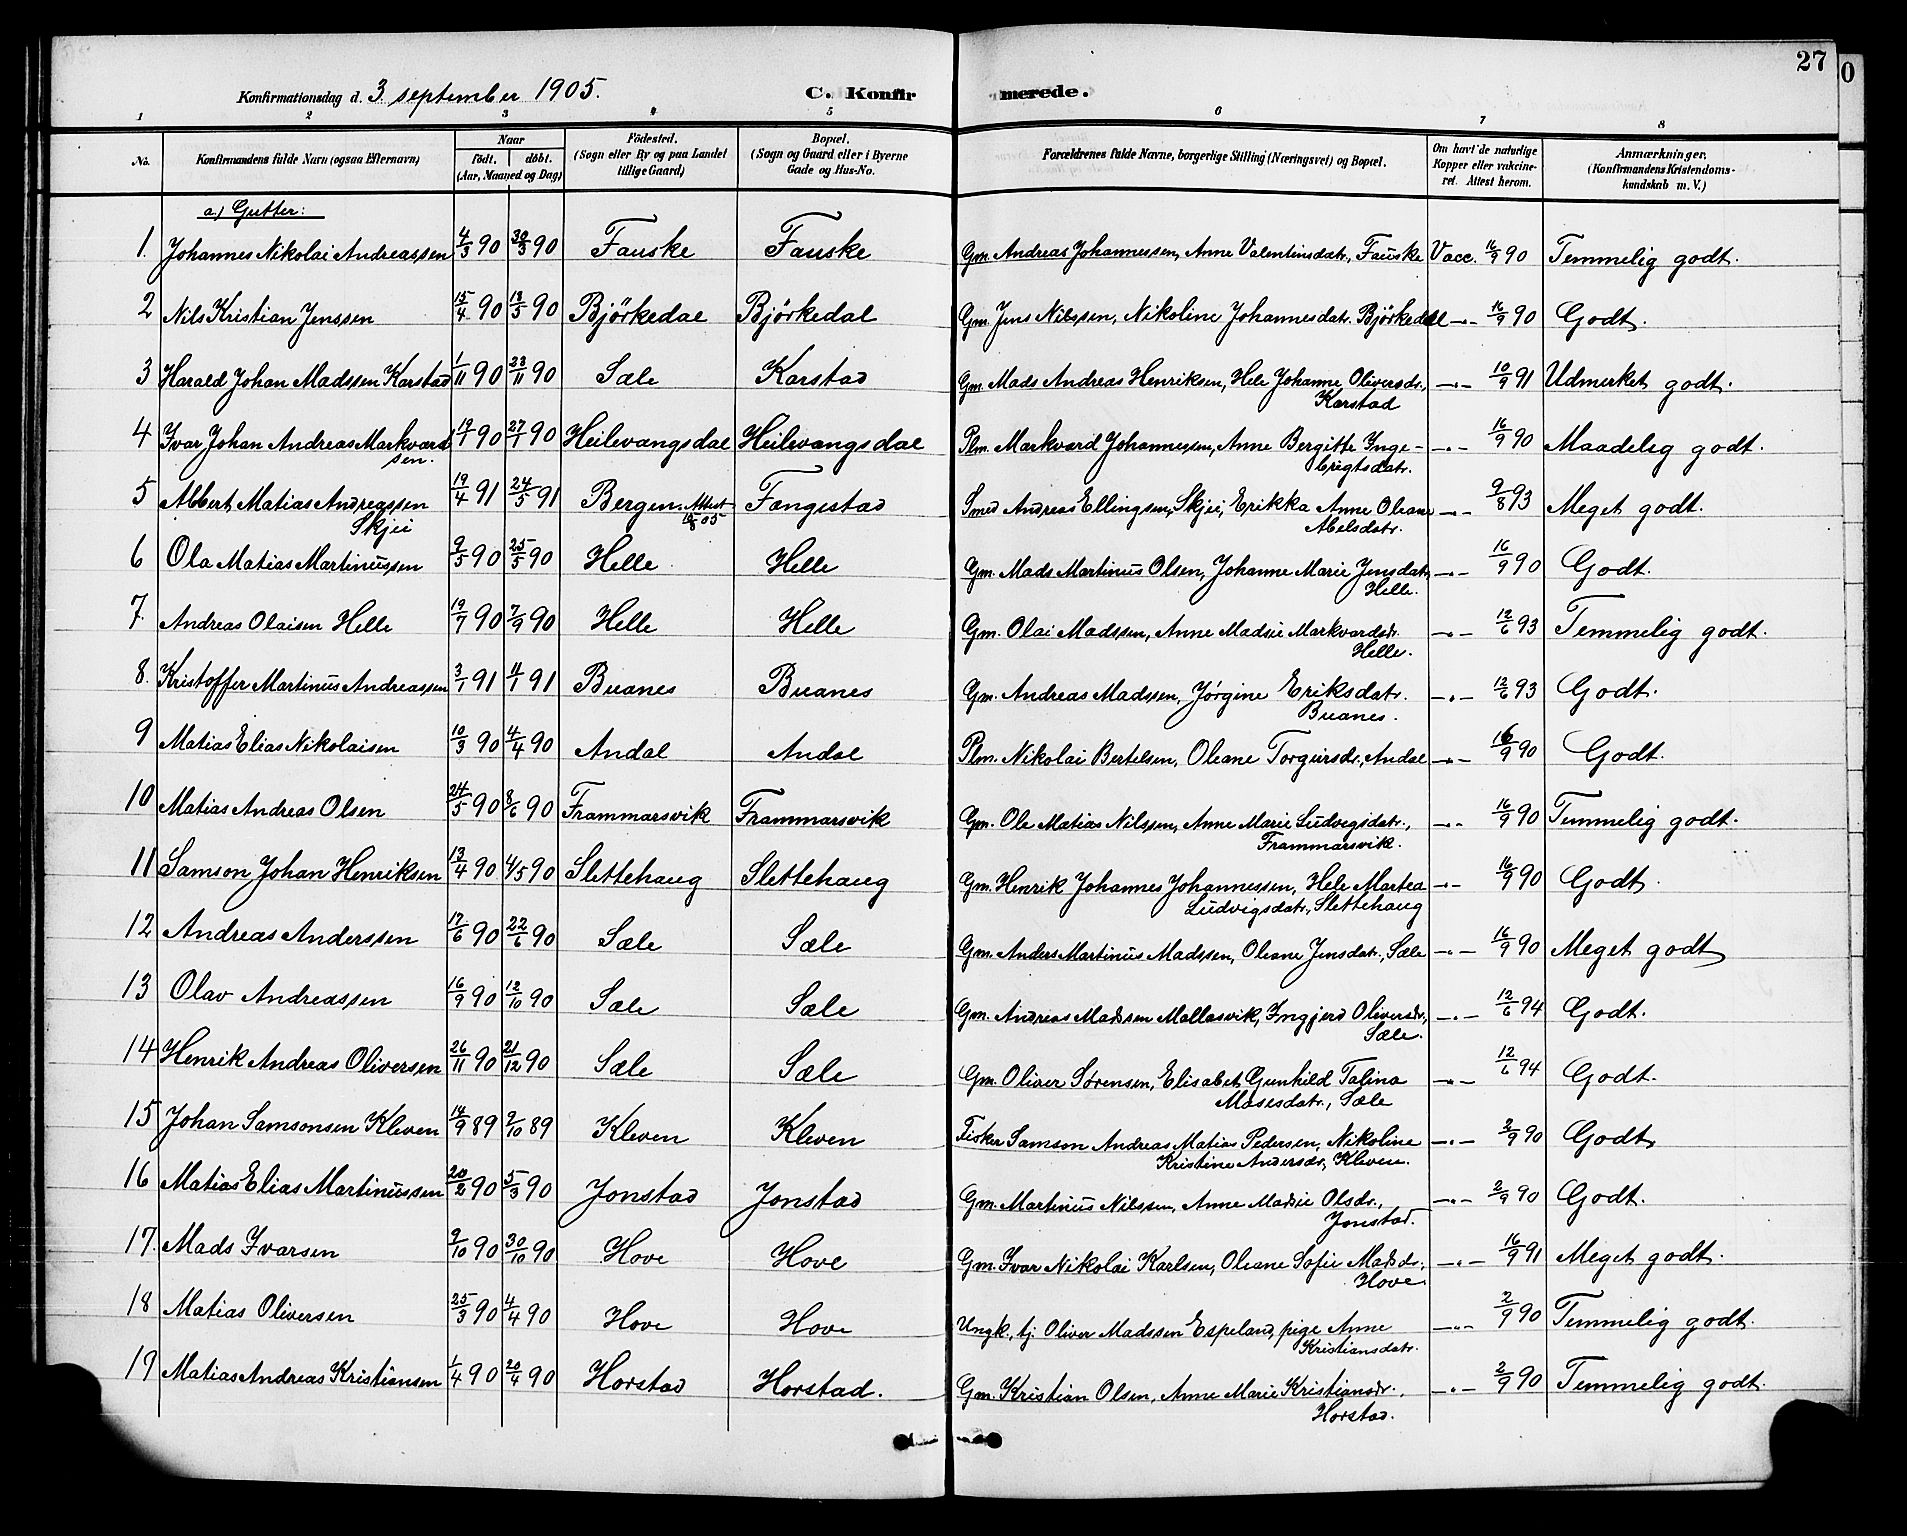 27
0
Konfirmationsdag d. 3 september 1905. C. Konfirmerede.
1 2 3 4 5 6 7 8
No. Konfirmandens fulde Navn (ogsaa Efternavn) Naar født. døbt. (Aar, Maaned og Dag) Fødested. (Sogn eller By og paa Landet tillige Gaard) Bopæl. (Sogn og Gaard eller i Byerne Gade og Hus-No. Forældrenes fulde Navne, borgerlige Stilling (Næringsvei) og Bopæl. Om havt de naturlige Kopper eller vakcineret. Attest herom. Anmærkninger. (Konfirmandens Kristendomskundskab m. V.)
a) Gutter:
1. Johannes Nikolai Andreassen 4/3 90 30/3 90 Fauske Fauske Gm. Andreas Johannessen, Anne Valentinsdatr., Fauske Vacc. 16/9 90 Temmelig godt.
2 Nils Kristian Jenssen 15/4 90 18/5 90 Bjørkedal Bjørkedal Gm. Jens Nilssen, Nikoline Johannesdatr. Bjørkedal —"— 16/9 90 Godt.
3 Harald Johan Madssen Karstad 1/11 90 23/11 90 Sæle Karstad Gm. Mads Andreas Henriksen, Hele Johanne Oliversdr., —"— 10/9 91 Udmerket godt.
Karstad
4 Ivar Johan Andreas Markvard 19/1 90 27/1 90 Heilevangsdal Heilevangsdal Plm. Markvard Johannessen, Anne Bergitte Inge- —"— 16/9 90 Maadelig godt.
sen. brigtsdatr.
5 Albert Matias Andreassen 19/4 91 24/5 91 Bergen. Attest Fængestad Smed Andreas Ellingsen, Skjei, Erikka Anne Oleane —"— 9/8 93 Meget godt.
Skjei 05 Abelsdatr.
6 Ola Matias Martinussen 9/5 90 25/5 90 Helle Helle Gm. Mads Martinus Olsen, Johanne Marie Jensdatr. —"— 16/9 90 Godt.
Helle.
7. Andreas Olaisen Helle 19/7 90 7/9 90 Helle Helle Gm. Olai Madssen, Anne Madsie Markvardsdr. —"— 12/6 93 Temmelig godt.
Helle.
8. Kristoffer Martinus Andreassen 3/1 91 11/1 91 Buanes Buanes Gm. Andreas Madssen, Jørgine Eriksdatr. —"— 12/6 93 Godt.
Buanes.
9 Matias Elias Nikolaisen 10/3 90 4/4 90 Andal Andal Plm. Nikolai Bertelsen, Oleane Torgeirsdr., Andal —"— 16/9 90 Godt.
10 Matias Andreas Olsen 24/5 90 8/6 90 Frammarsvik Frammarsvik Gm. Ole Matias Nilssen, Anne Marie Ludvigsdatr., —"— 16/9 90 Temmelig godt.
Frammarsvik.
11 Samson Johan Henriksen 13/4 90 4/5 90 Slettehaug Slettehaug Gm. Henrik Johannes Johannessen, Hele Martea —"— 16/9 90 Godt.
Ludvigsdatr., Slettehaug
12 Andreas Anderssen 12/6 90 22/6 90 Sæle Sæle Gm. Anders Martinus Madssen, Oleane Jensdatr., Sæle —"— 16/9 90 Meget godt
13 Olav Andreassen 16/9 90 12/10 90 Sæle Sæle Gm. Andreas Madssen Mallasvik, Ingjerd Oliversdr., —"— 12/6 94 Godt.
Sæle.
14 Henrik Andreas Oliversen 26/11 90 21/12 90 Sæle Sæle Gm. Oliver Sørensen, Elisabet Gunhild Talina —"— 12/6 94 Godt.
Mosesdatr., Sæle
15 Johan Samsonsen Kleven 14/9 89 2/10 89 Kleven Kleven Fisker Samson Andreas Matias Pedersen, Nikoline —"— 2/9 90 Godt
Kristine Andersdr., Kleven.
16 Matias Elias Martinussen 20/2 90 5/3 90 Jonstad Jonstad Gm. Martinus Nilssen, Anne Madsie Olsdr., —"— 2/9 90 Godt.
Jonstad.
17. Mads Ivarsen 9/10 90 30/10 90 Hove Hove Gm. Ivar Nikolai Karlsen, Oleane Sofie Madsdr., —"— 16/9 91 Meget godt.
Hove.
18 Matias Oliversen 25/3 90 4/4 90 Hove Hove Ungk., tj. Oliver Madssen Espeland, pige Anne —"— 2/9 90 Temmelig godt.
Kristiansdatr.
19 Matias Andreas Kristiansen 1/4 90 20/4 90 Horstad Horstad. Gm. Kristian Olsen, Anne Marie Kristiansdr., —"— 2/9 90 Temmelig godt.
Horstad.